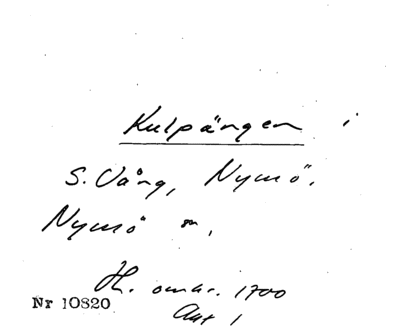 Kulpängen i
S. Vång, Nymö.
Nymö sn,
H. omkr. 1700
Akt 1
Nr 10820